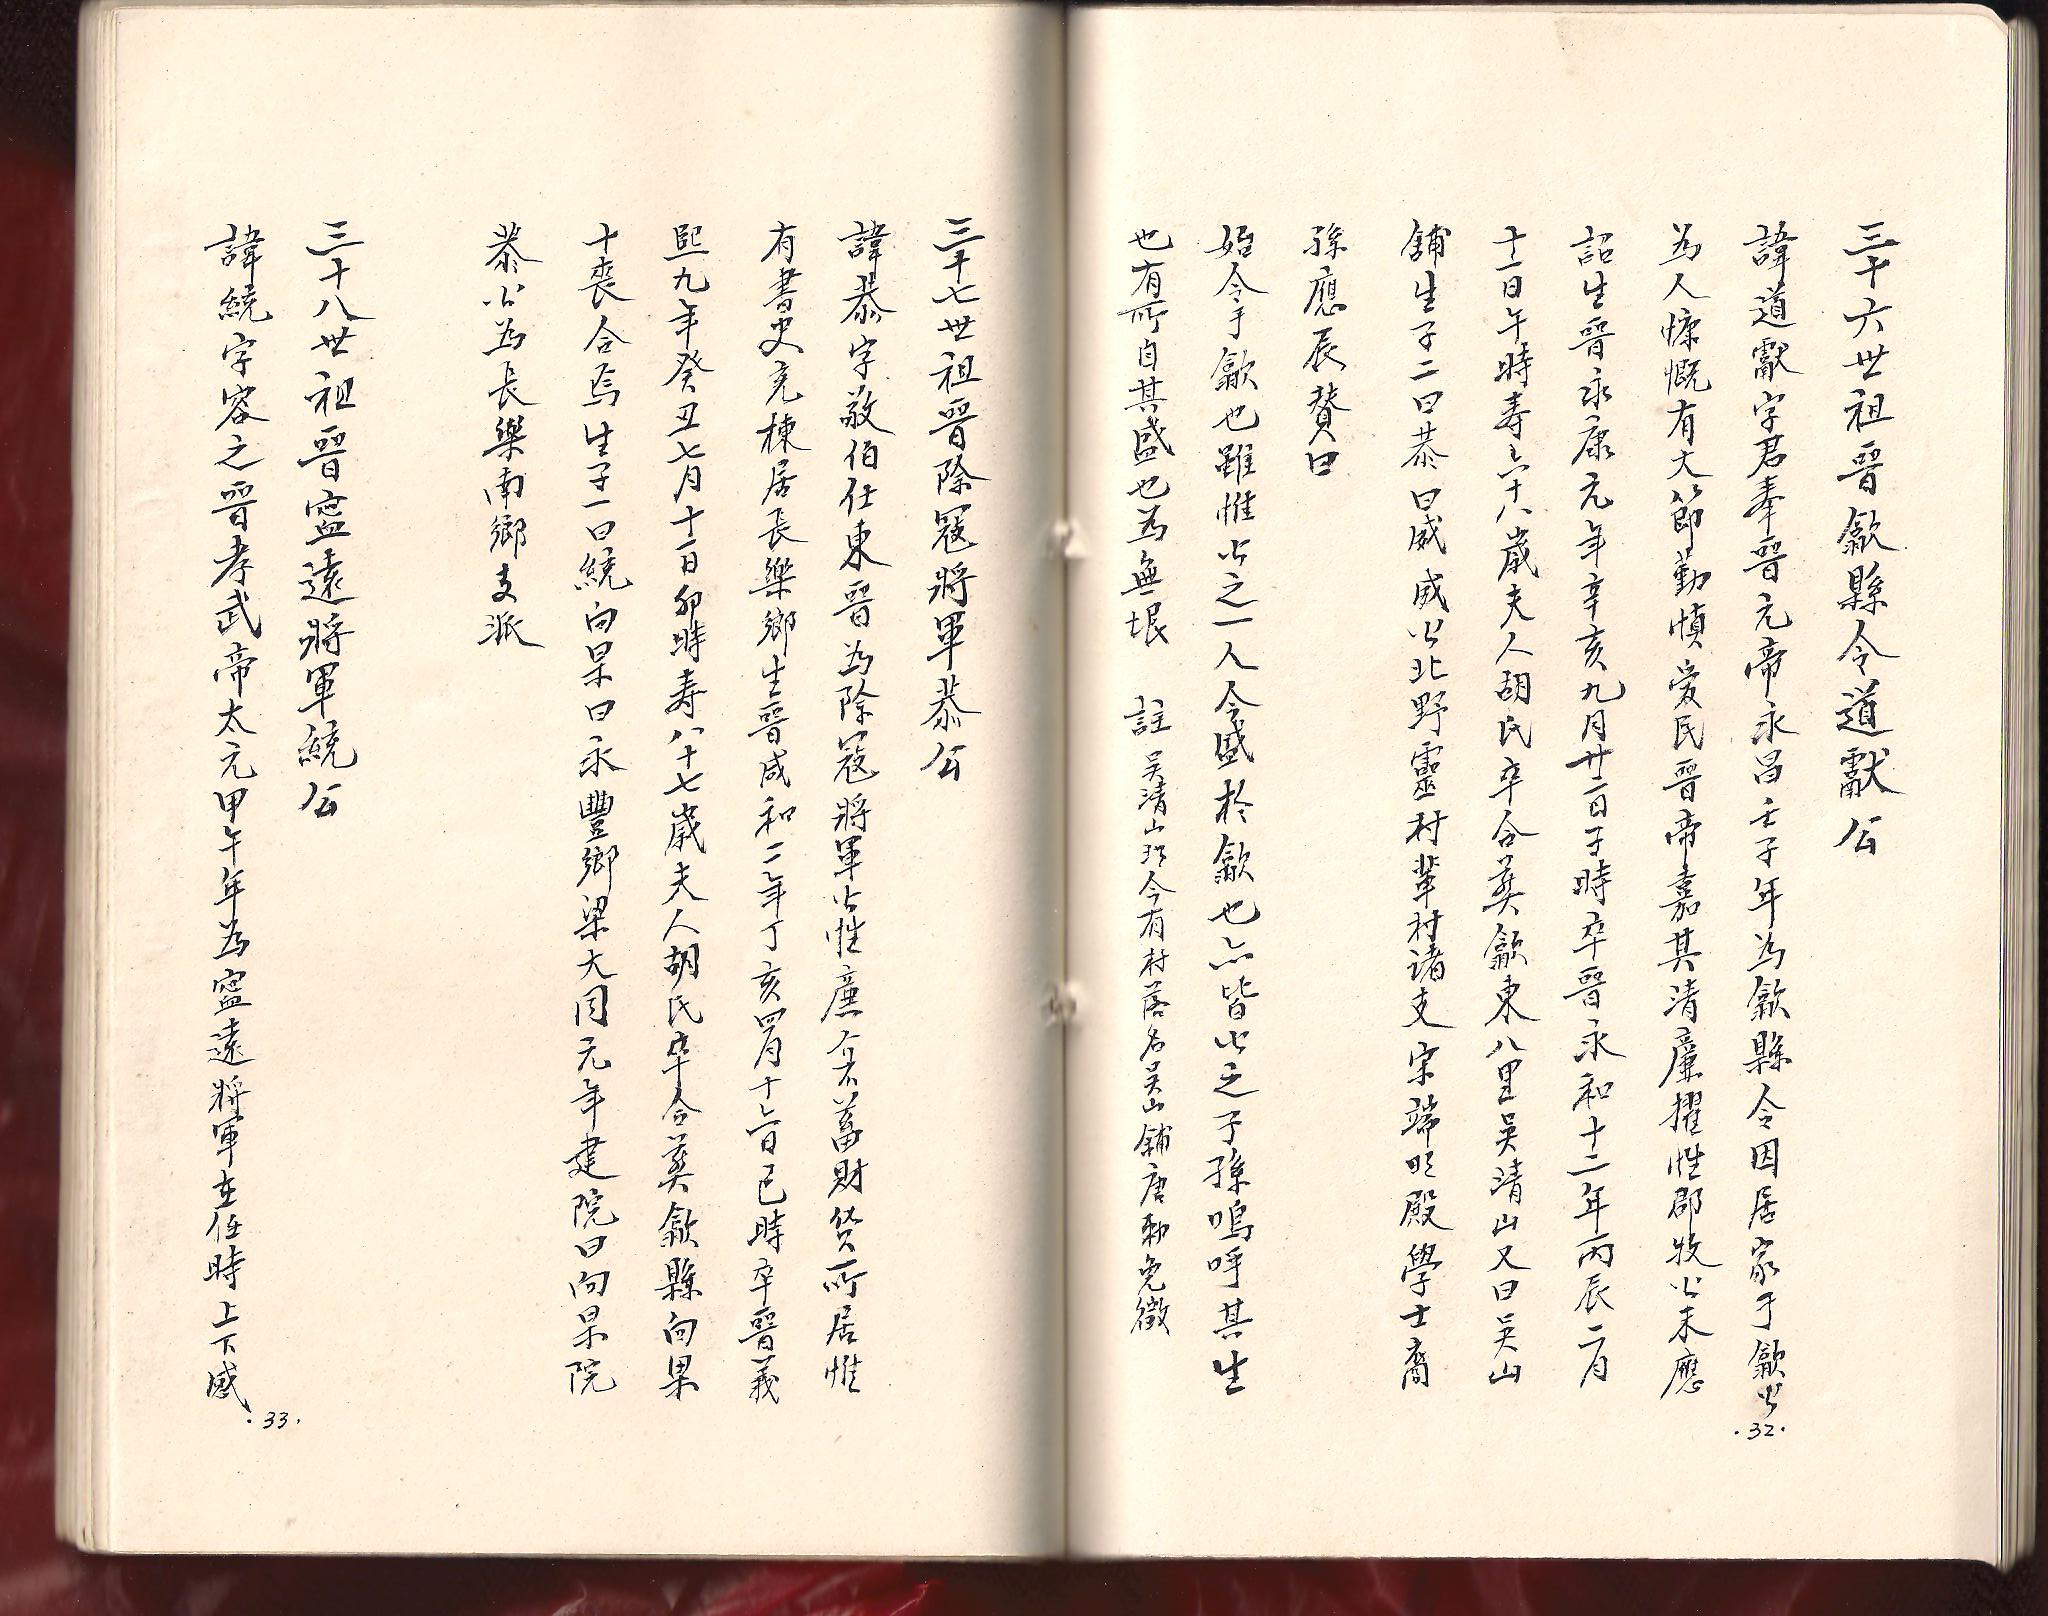 三十六世祖晉歙縣令道獻公
諱道獻字君奉晉元帝永昌壬子年為歙縣令因居家于歙公
為人慷慨有大節勤慎爱民晉帝嘉其清廉擢性郡牧公未應
詔生晉永康元年辛亥九月廿一日子時卒晉永和十二年丙辰二月
十一日午時寿六十八歲夫人胡氏卒合葬歙東八里吴清山又曰吴山
舖生子二曰恭曰威威公北野靈村葦村诸支宗端明殿學士裔
孫應辰赞曰
始令于歙也雖惟公之一人今盛於歙也亦皆公之子孫嗚呼其生
也有所自其盛也為無垠　註吴清山现今有村落名吴山舖唐勅免徵
·32·
三十七世祖晉除寇將軍恭公
諱恭字敬伯仕東晉為除寇將軍公性廉介不蓄財货所居惟
有書史充棟居長樂鄉生晉咸和二年丁亥四月十六日已時卒晉義
熙九年癸丑七月十一日卯時寿八十七歲夫人胡氏卒合葬歙縣向杲
十喪合焉生子一曰繞向杲曰永豐鄉梁大同元年建院曰向杲院
恭公為長樂南鄉支派
三十八世祖晉寧遠將軍繞公
諱繞字容之晉孝武帝太元甲午年為寧遠將軍在任時上下感
·33·